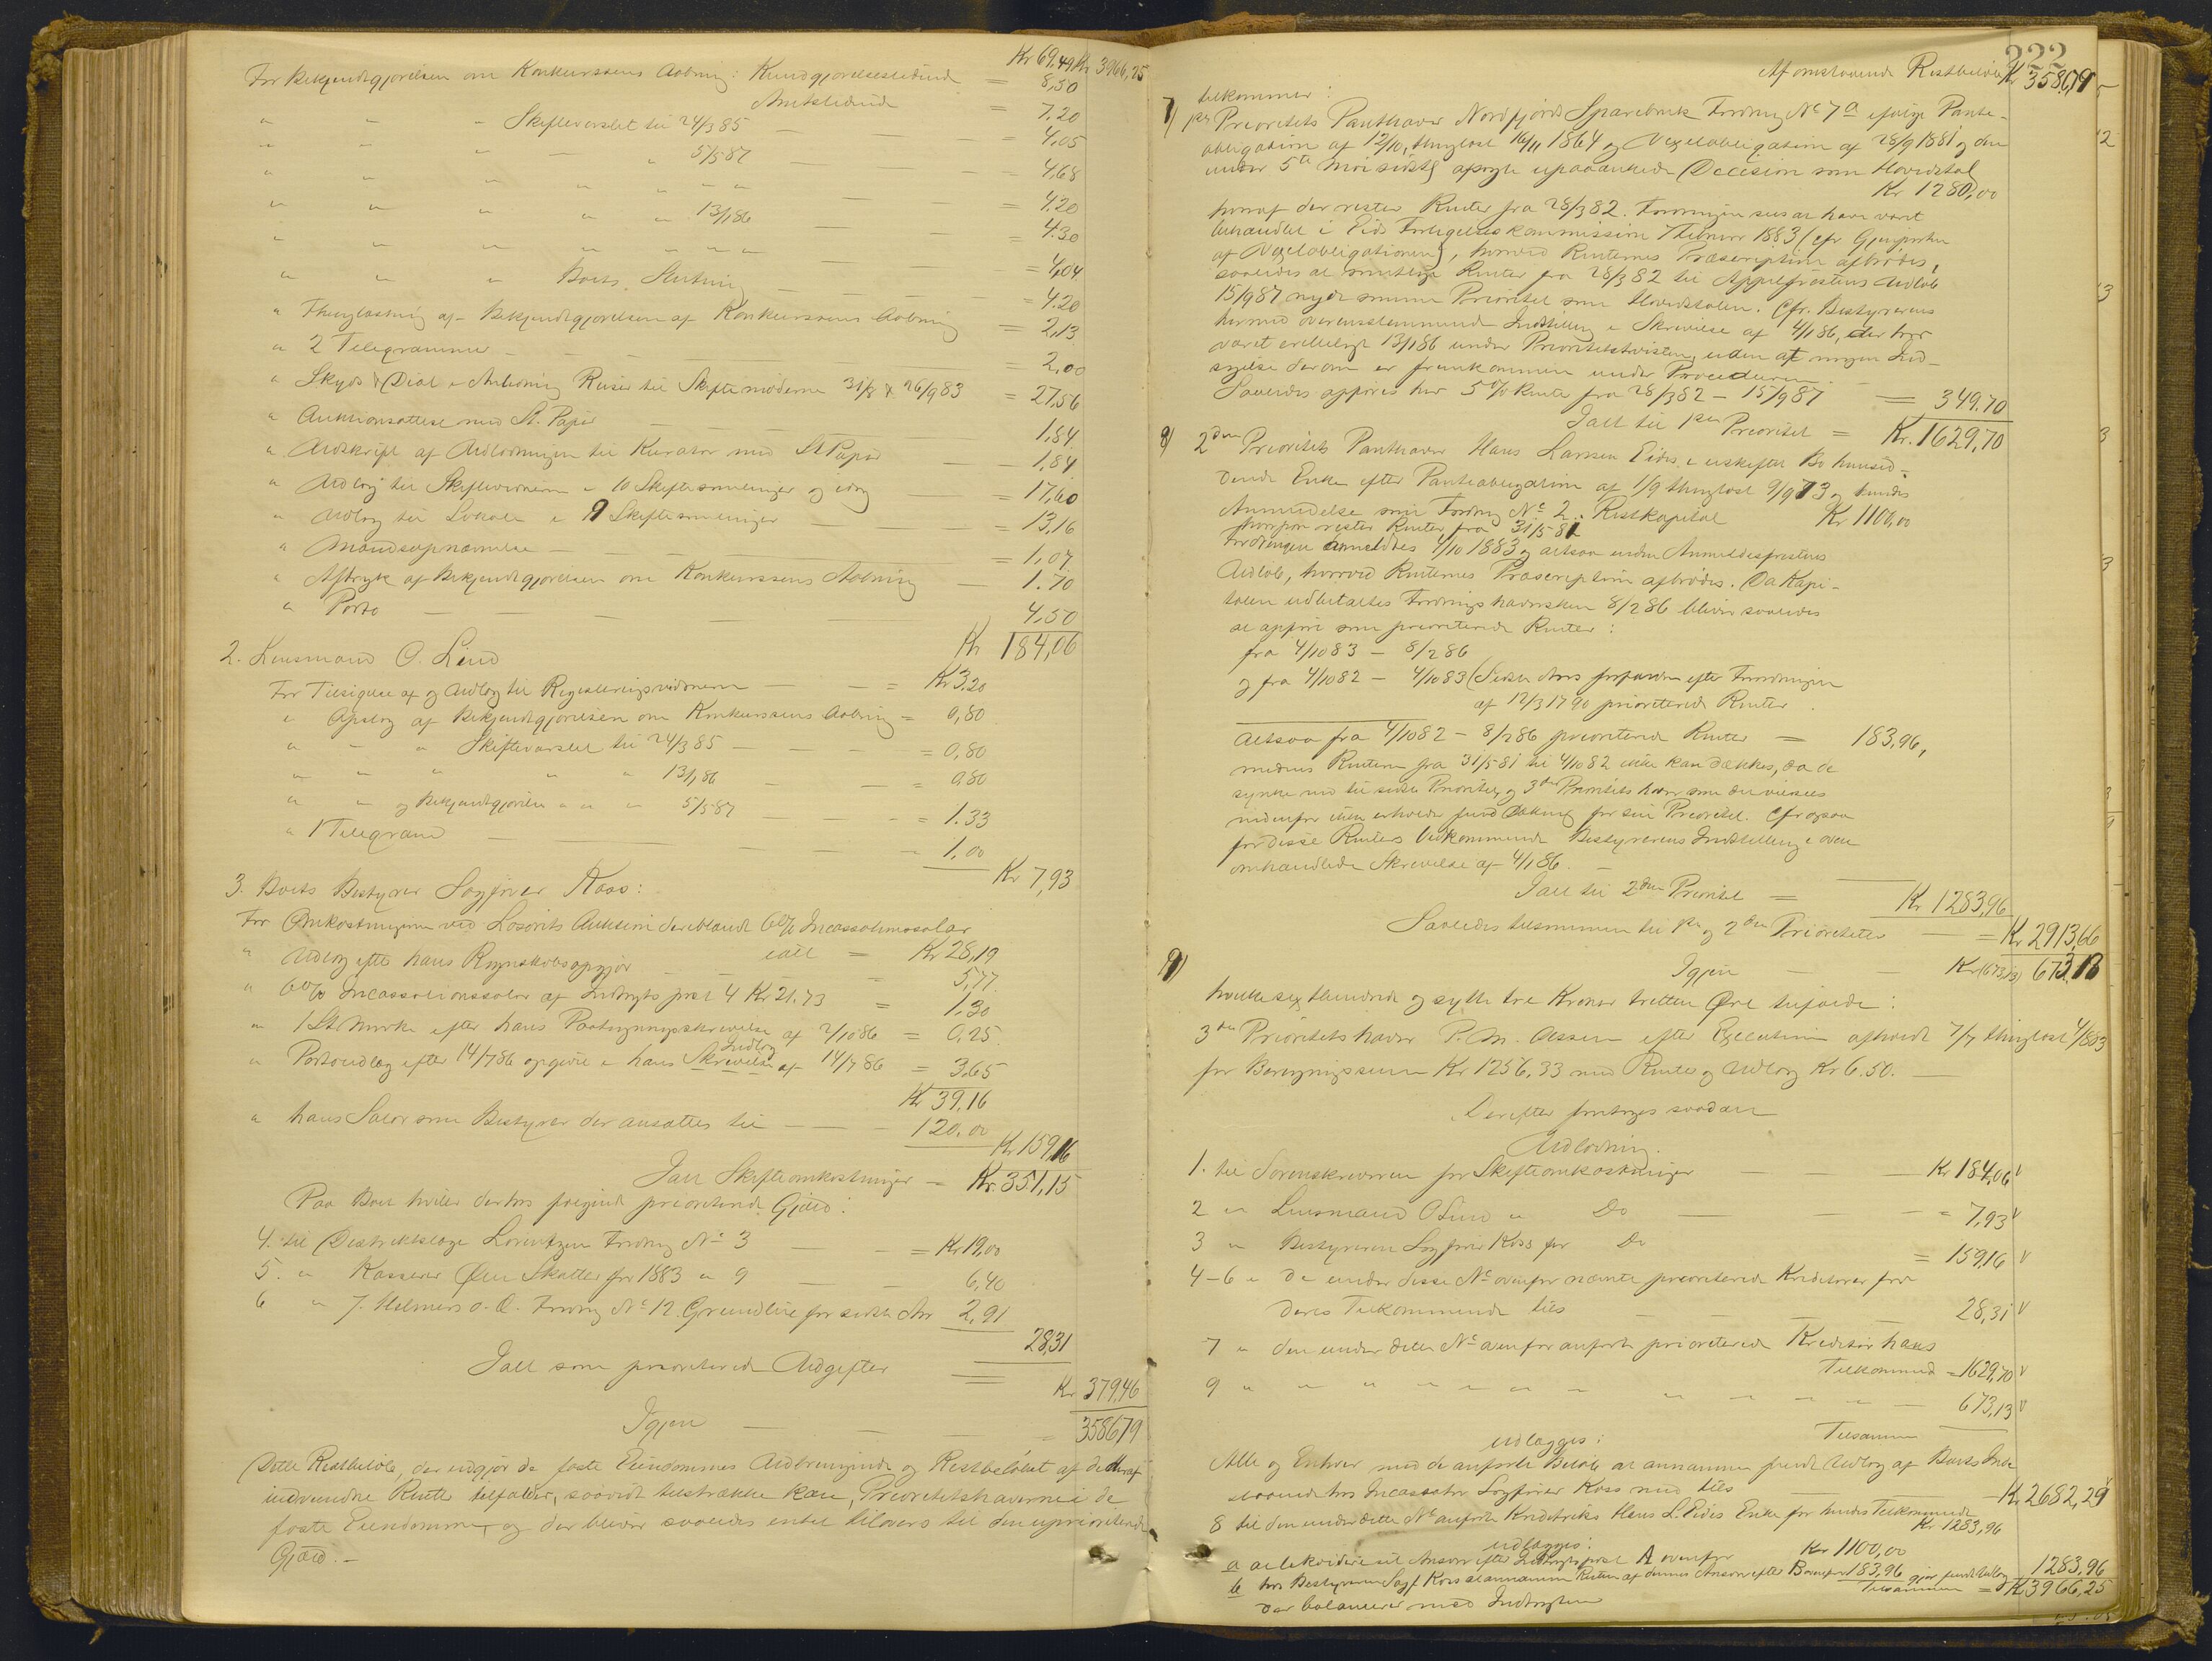 Kr 69,49 Kr 3966,25
For Bekjendtgjørelsen om Konkurssens Aabning: Kundgjørelsestidende = 8,50
Amtstidende = 7.20
" " " Skiftevarslet til 24/3 85 — — = 4,05
" " " — " 5/5 87 — — 4,68
" " " " " " " — — = 4.20
" " " " " 13/1 86 — — = 4.30
" " " " " " " — — = 4,04
" " " Boets Slutning — — — = 4.20
" Thinglæsning af Bekjendtgjørelsen af Konkurssens Aabning = 2,13
" 2 Telegrammer — — — = 2,00
" Skyds & Diæt i Anledning Reiser til Skiftemøderne 31/8 & 26/9 83 = 27,56
" Auktionsattest med St. Papir — — — 1,84
" Udskrift af Udlodningen til Kurator med St Papir — — 1,84
" Udlæg til Skiftevidnerne i 10 Skiftesamlinger og — = 17,60
" Udlæg til Lokale i 9 Skiftesamlinger — — = 13,16
" Mandsopnævnelse — — — = 1,07
" Aftryk af Bekjendtgjørelsen om Konkurssens Aabning — 1.70
" Porto — — — 4,50
Kr 184,06
2. Lensmand O. Lind
For Tilsigelse af og Udlæg til Registreringsvidnerne — = Kr 3,20
" Opslag af Bekjendtgjørelsen om Konkurssens Aabning = 0,80
" — " Skiftevarslet til 24/3 85 — — = 0,80
" — " " " 13/1 86 — — = 0.80
" " og Bekjendtgjørelse " " " 5/5 87 — — = 1.33
" 1 Telegram — — — 1,00
Kr 7,93
3. Boets Bestyrer Sagfører Koss:
For Omkostningerne ved Løsørets Auktion deriblandt 6% Incassationssalær
ialt = Kr 28,19
" Udlæg efter hans Regnskabsopgjør — — — 5,77
" 6% Incassationssalær af Indtægts post 4 Kr 21.73 = 1,30
" 1 St Mærke efter hans Paategningsskrivelse af 2/10 86 = 0,25
Indlæg
" Portoudlæg efter 14/7 86 opgivet i hans Skrivelse af 14/7 86 = 3,65
Kr 39,16
" hans Salær som Bestyrer der ansættes til — — — 120,00
Kr 159,16
Ialt Skifteomkostninger — Kr. 351,15
Paa Boet hviler derhos følgende prioriterede Gjæld:
4. til Distriktslæge Lorentzen Fordring No 3 — — = Kr 19,00
5. " Kasserer Øen Skatter for 1883 " 9 — — 6,40
6 " J. Helmers o. a. Fordring No 12 Grundleie for sidste Aar 2,91
28,31
Ialt som prioriterede Udgifter = Kr 379,46
Igjen — — — = 3586,79
Dette Restbeløb, der udgjør de faste Eiendommes Udbringende og Restbeløbet af de deraf
indvundne Renter tilfalder, saavidt tilstrække kan, Prioritetshaverne i de
faste Eiendomme, og der bliver saaledes intet tilovers til den uprioriterede
Gjæld. —
222
Af omstaaende Restbeløb Kr 3586,79
tilkommer:
7) 1ste Prioritets Panthaver Nordfjords Sparebank Fordring No 7a ifølge Pante-
obligation af 12/10, thinglæst 16/11 1864 og Vexelobligation af 28/9 1881 og den
under 5te Mai sidstl. afsagte upaaankede Decision som Hovedstol
Kr 1280,00
hvoraf der rester Renter fra 28/3 82. Fordringen sees at have været
behandlet i Eids Forligelseskommission Februar 1883 (cfr Gjenparten
af Vexelobligationen), hvorved Renternes Præscription afbrødes,
saaledes at samtlige Renter fra 28/3 82 til Appelfristens Udløb
15/9 87 nyde samme Prioritet som Hovedstolen. Cfr. Bestyrerens
hermed overensstemmende Indstilling i Skrivelse af 4/1 86, der har
været 13/1 86 under Prioritetstvisten, uden at nogen Ind-
sigelse derom er fremkommen under Proceduren.
Saaledes opføres her 5% Rente fra 28/3 82 — 15/9 87 = 349.70
Ialt til 1ste Prioritet = Kr. 1629,70
8) 2den Prioritets Panthaver Hans Larssen Eides i uskiftet Bo hensid-
dende Enke efter Panteobligation af 1/9 thinglæst 9/9 73 og hendes
Anmeldelse som Fordring No 2. Restkapital Kr 1100,00
hvorpaa rester Renter fra 31/5 81
Fordringen anmeldtes 4/10 1883 og altsaa inden Anmeldelsfristens
Udløb, hvorved Renternes Præscription afbrødes. Da Kapi-
talen udbetaltes Fordringshaversken 8/2 86 bliver saaledes
at opføre som prioriterede Renter:
fra 4/10 83 — 8/2 86
og fra 4/10 82 — 4/10 83 (Sidste Aars forfaldne efter Forordningen
af 12/3 1790 prioriterede Renter
Altsaa fra 4/10 82 — 8/2 86 prioriterede Renter = 183,96,
medens Renterne fra 31/5 81 til 4/10 82 ikke kan dækkes, da de
synke ned til sidste Prioritet, og 3die Prioritets haver som der vil sees
nedenfor ikke erholder fuld Dækning for sin Prioritet. Cfr ogsaa
for disse Renters Vedkommende Bestyrerens Indstilling i oven
omhandlede Skrivelse af 4/1 86. —
Ialt til 2den Prioritet = Kr 1283,96
Saaledes tilsammen til 1ste og 2den Prioriteter — = Kr 2913,66
9) Igjen — — Kr (673,13) 673,13
hvilke sex Hundrede og sytti tre Kroner tretten Øre tilfalde:
3die Prioritets haver P. M. Aasen efter Execution afholdt 7/7 thinglæst 4/8 83
for Beregningssum Kr 1256,33 med Renter og Udlæg Kr 6.50. —
Derefter foretages saadan
Udlodning.
1. til Sorenskriveren for Skifteomkostninger — — — Kr 184,06 V
2 " Lensmand O Lind " Do — — — = 7,93 V
3 " Bestyreren Sagfører Koss for Do = 159,16 V
4-6 " de under disse No ovenfor nævnte prioriterede Kreditorer for
deres Tilkommende tils — — — 28,31 V
7 " den under dette No ovenfor anførte prioriterede Kreditor hans
Tilkommende = 1629,70 V
9 " " " " " " " " " " — 673,13 V
Tilsammen
udlægges:
Alle og Enhver med de anførte Beløb at annamme fuldt Udlæg af Boets Inde
staaende hos Incassator Sagfører Koss med tils — — — Kr 2682,29
8 til den under dette No anførte Kreditrice Hans L. Eides Enke for hendes Tilkommende
Kr. 1283,96
udlægges:
a at likvidere sit Ansvar efter Indtægtspost A ovenfor Kr 1100,00
b hos Bestyreren Sagf. Koss at annamme Resten af dennes Ansvar efter B ovenfor 183,96 gjør fuldt Udlæg 1283,96
Tilsammen = Kr 3966,25
der balancerer med Indtægten